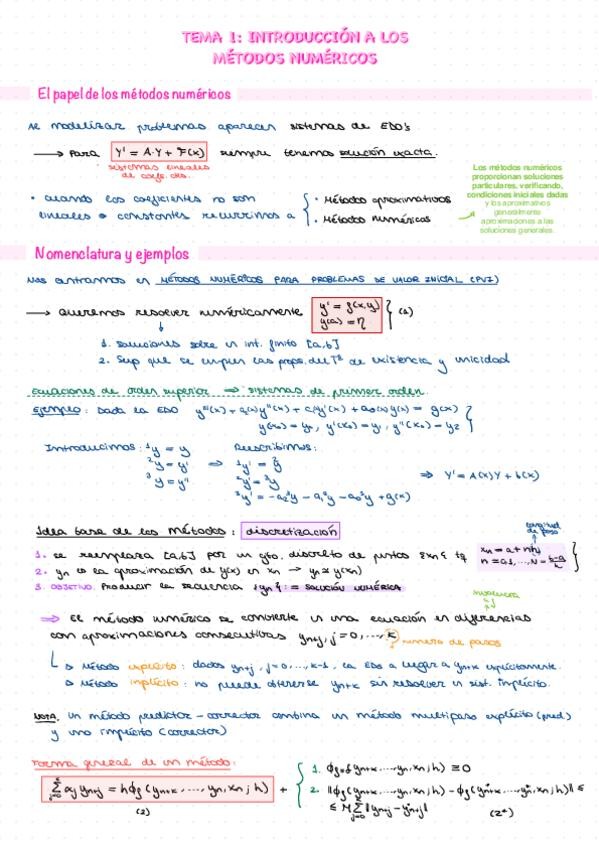 TEMA 1: INTRODUCCIÓN A LOS
MÉTODOS NUMÉRICOS
El papel de los métodos numéricos
Al modelizar problemas aparecen sistemas de EDO's
→ Para Y' = A·Y + F(x) siempre tenemos solución exacta.
sistemas lineales
de coefs. ctes.
Los métodos numéricos
proporcionan soluciones
particulares, verificando,
condiciones iniciales dadas
y los aproximativos
generalmente
aproximaciones a las
soluciones generales.
• cuando los coeficientes no son
lineales o constantes recurrimos a { · Métodos aproximativos
· Métodos numéricos
Nomenclatura y ejemplos
Nos centramos en MÉTODOS NUMÉRICOS PARA PROBLEMAS DE VALOR INICIAL (PVI)
→ Queremos resolver numéricamente y' = f(x,y)
y(a) = η } (1)
1. soluciones sobre un int. finito [a,b]
2. Sup que se cumplen las props. del Tª de existencia y unicidad
Ecuaciones de orden superior ⇒ sistemas de primer orden.
Ejemplo: Dada la EDO y'''(x) + a₂(x)y''(x) + a₁y'(x) + a₀(x)y(x) = g(x)
y(x₀) = y₀, y'(x₀) = y₁, y''(x₀) = y₂
Introducimos: ¹y = y
²y = y'
³y = y''
⇒ Reescribimos:
¹y' = ²y
²y' = ³y
³y' = -a₂³y - a₁²y - a₀¹y + g(x)
⇒ Y' = A(x)Y + b(x)
Idea base de los métodos: discretización
longitud
de paso
1. se reemplaza [a,b] por un cjto. discreto de puntos {xn} tq xn = a + nh
n = 0,1,...,N = (b-a)/h
2. yn es la aproximación de y(x) en xn → yn ≈ y(xn)
3. OBJETIVO: Producir la secuencia {yn} := SOLUCIÓN NUMÉRICA
involucra
⇒ El método numérico se convierte en una ecuación en diferencias
con aproximaciones consecutivas yn+j, j = 0,...,k número de pasos
↳ Método explícito: dados yn+j, j = 0,...,k-1, la EDD a lugar a yn+k explícitamente.
↳ Método implícito: no puede obtenerse yn+k sin resolver un sist. implícito.
NOTA. Un método predictor-corrector combina un método multipaso explícito (pred)
y uno implícito (corrector)
Forma general de un método:
∑ αj yn+j = hϕf(yn+k,...,yn,xn;h) + { 1. ϕf≡0(yn+k,...,yn,xn;h) ≡ 0
(2)
2. ‖ϕf(yn+k,...,yn,xn;h) - ϕf(y*n+k,...,y*n,xn;h)‖ ≤
≤ M∑‖yn+j - y*n+j‖ (2*)